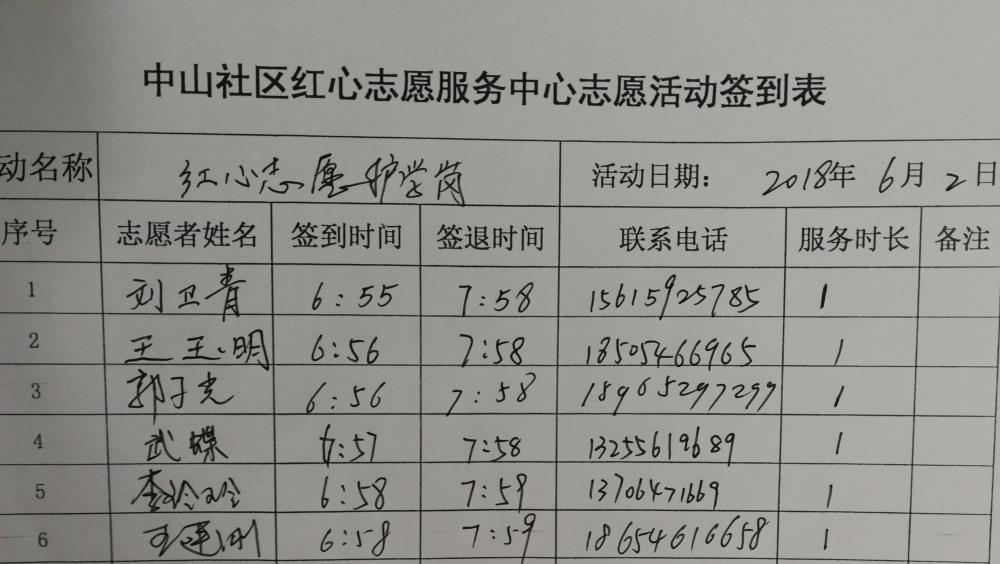 中山社区红心志愿服务中心志愿活动签到表
动名称 红心志愿护学岗 活动日期: 2018年 6月 2日
序号 志愿者姓名 签到时间 签退时间 联系电话 服务时长 备注
1 刘卫青 6:55 7:58 15615925785 1
2 王玉明 6:56 7:58 18505466965 1
3 郭子光 6:56 7:58 18965297299 1
4 武蝶 6:57 7:58 13255619689 1
5 李玲玲 6:58 7:59 13706471669 1
6 6:58 7:59 18654616658 1